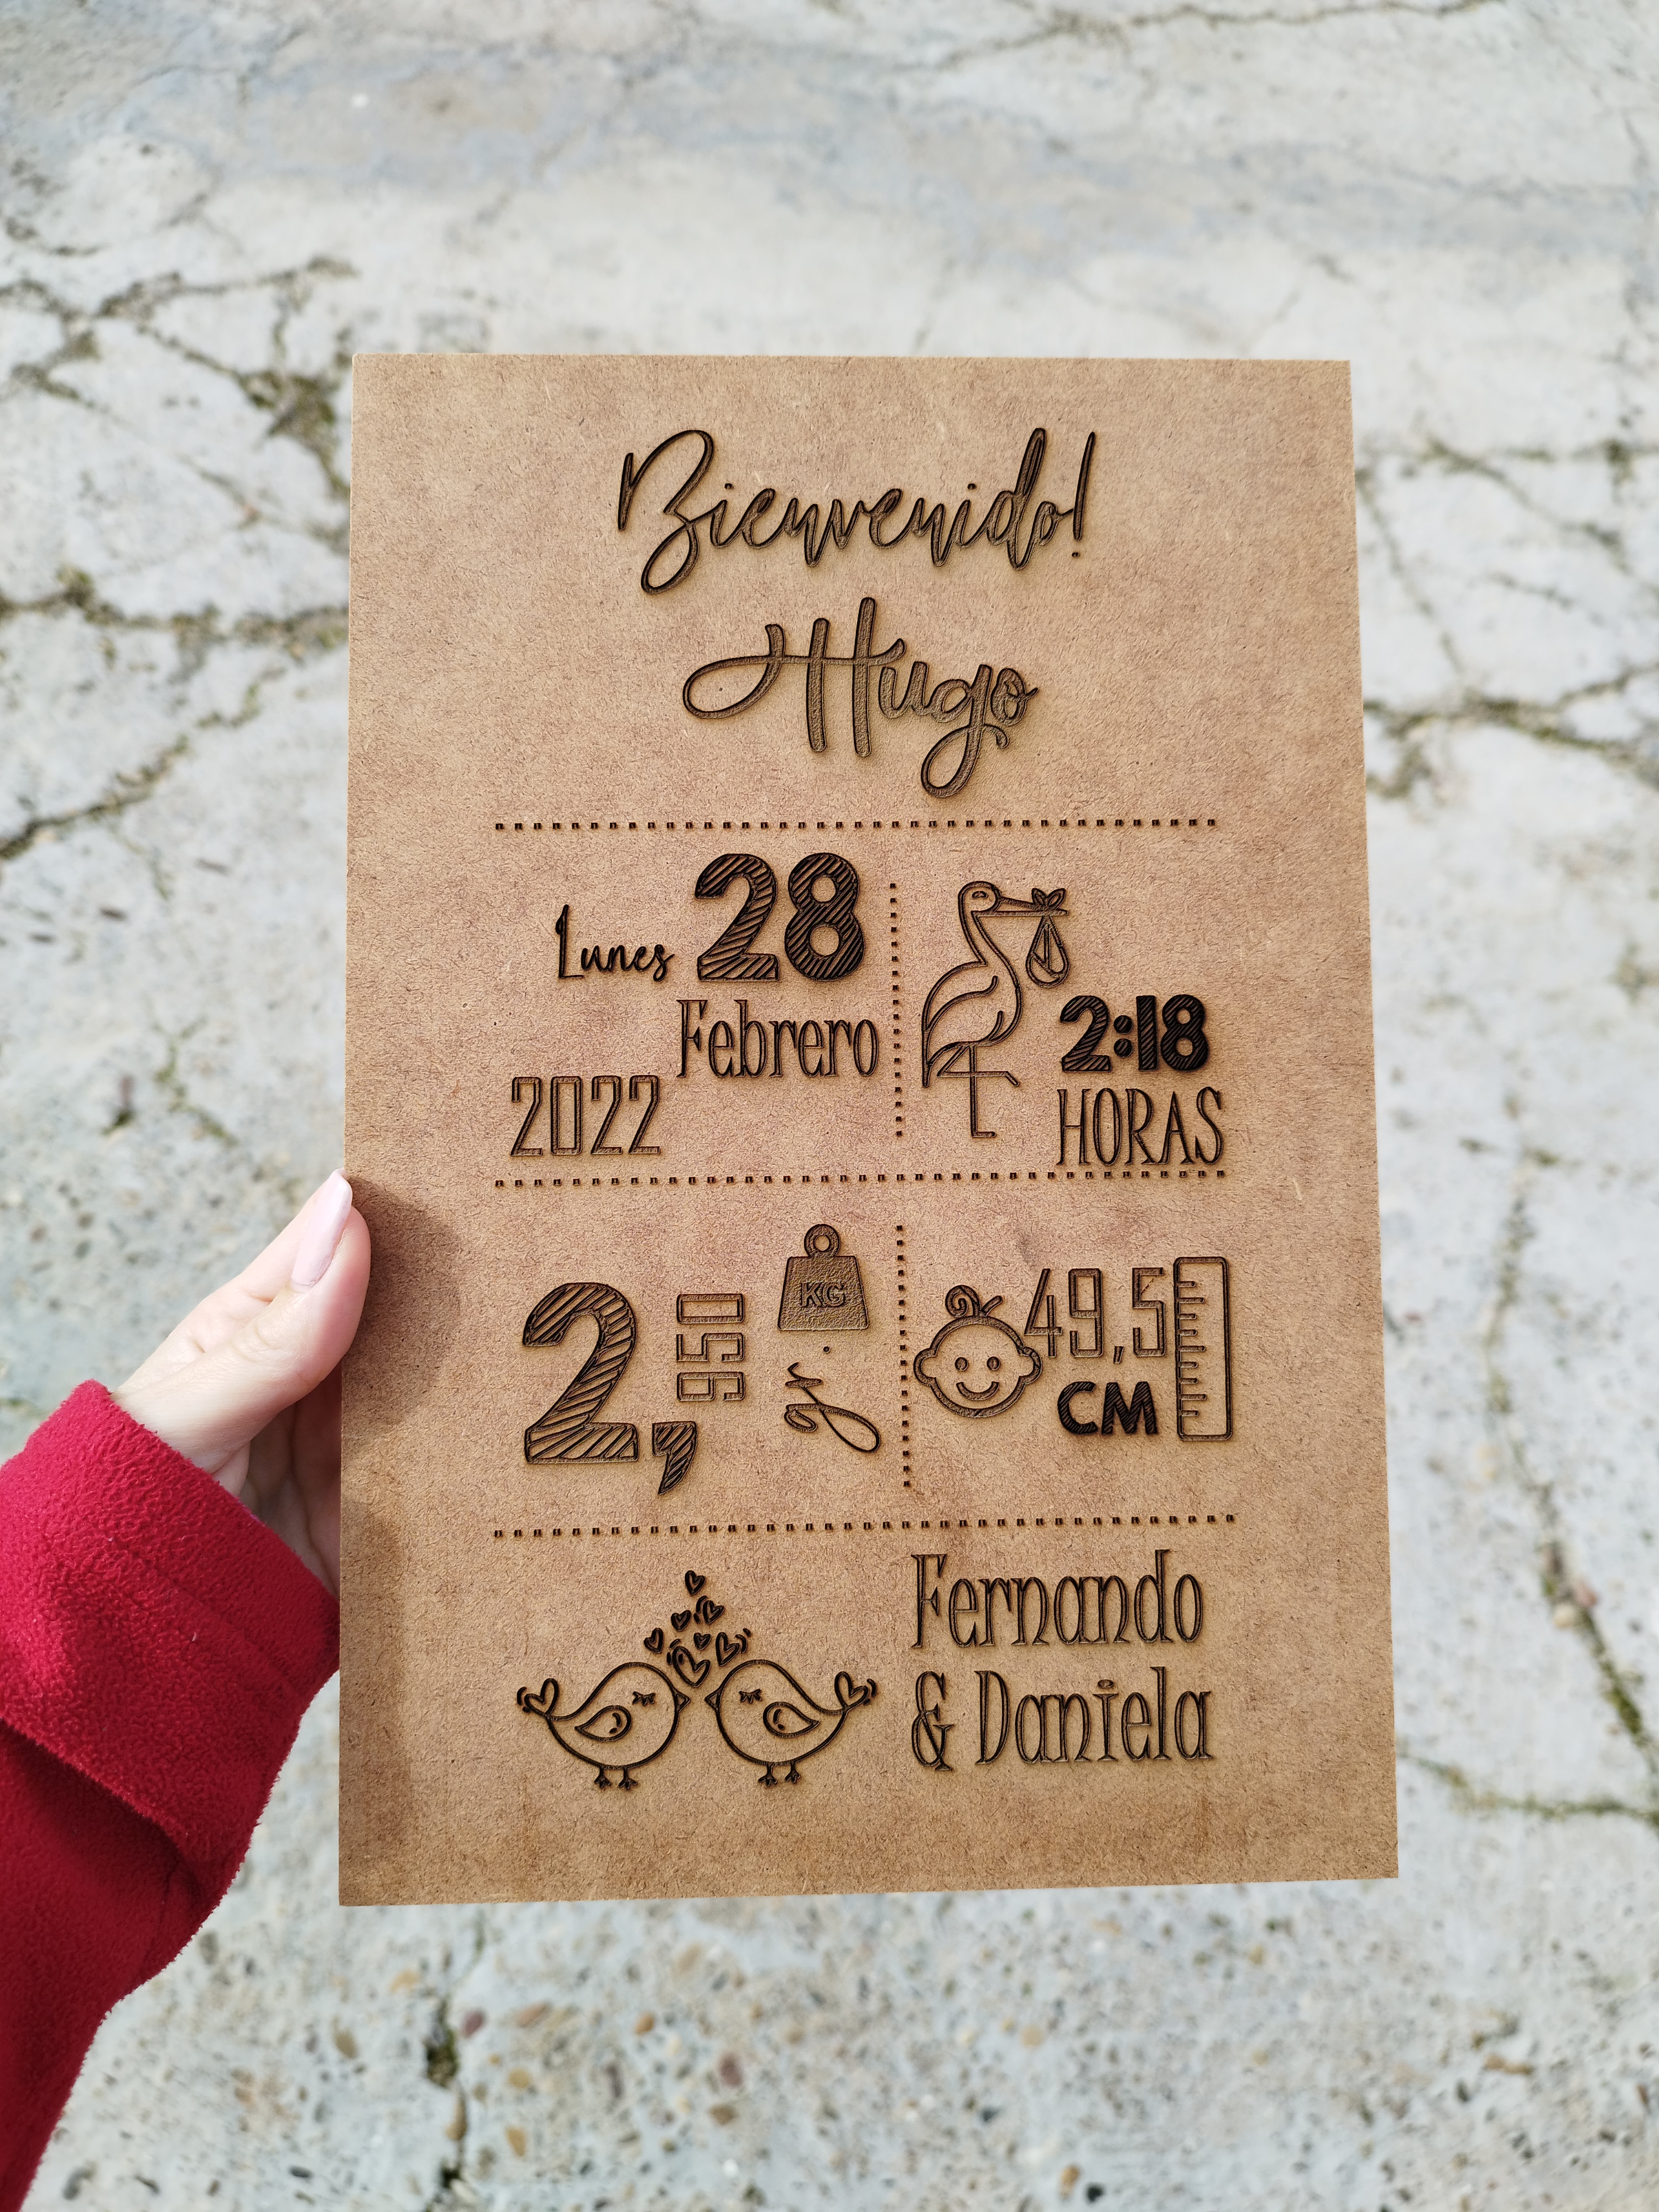 Bienvenido!
Hugo
Lunes 28
Febrero
2022
2:18
HORAS
2,950
KG
gr.
49,5
CM
Fernando
& Daniela